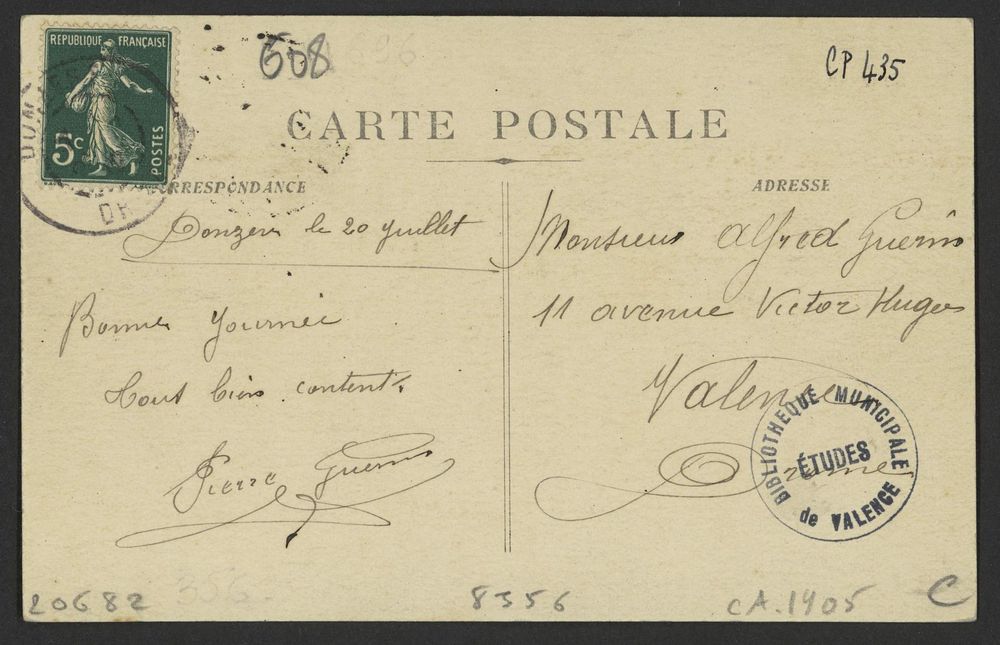 REPUBLIQUE FRANÇAISE
5c
POSTES
DR
608
CP 435
CARTE POSTALE
CORRESPONDANCE
ADRESSE
Donzère le 20 Juillet
Bonne journée
tout bien content
Pierre Guerin
Monsieur Alfred Guerin
11 avenue Victor Hugo
Valence
Drome
BIBLIOTHEQUE MUNICIPALE
ÉTUDES
de VALENCE
20682
356
8356
CA.1905
C